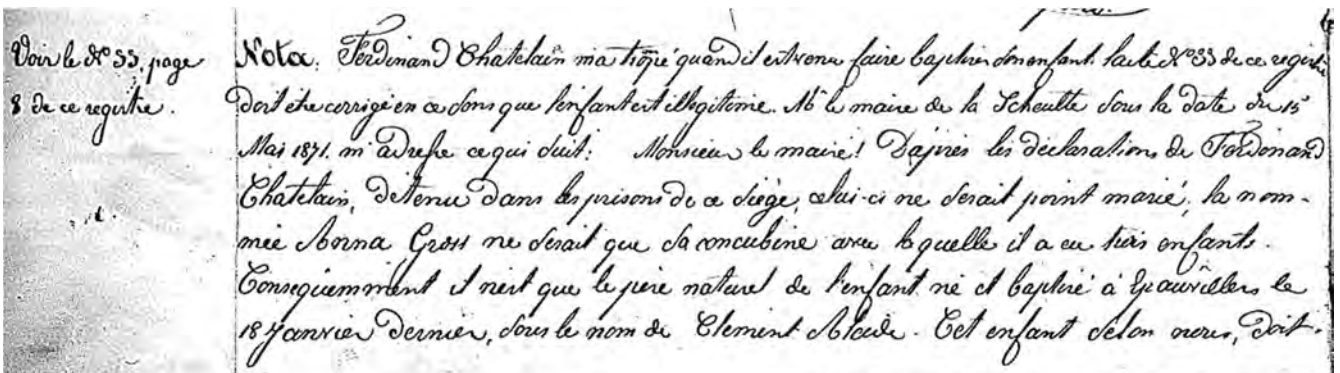 Voir le N° 33, page
8 de ce registre.
Nota: Ferdinand Chatelain m'a trompé quand il est venu faire baptiser son enfant. l'acte N° 33 de ce registre
doit être corrigé en ce sens que l'enfant est illégitime. Mr le maire de la Scheulte sous la date du 15
Mai 1871. m'adresse ce qui suit: Monsieur le maire! D'après les déclarations de Ferdinand
Chatelain, détenu dans les prisons de ce siège, celui-ci ne serait point marié, la nom-
mée Anna Gross ne serait que sa concubine avec laquelle il a eu trois enfants.
Conséquemment il n'est que le père naturel de l'enfant né et baptisé à Epauvillers le
18 Janvier dernier, sous le nom de Clement Alcide. Cet enfant selon nous, doit-